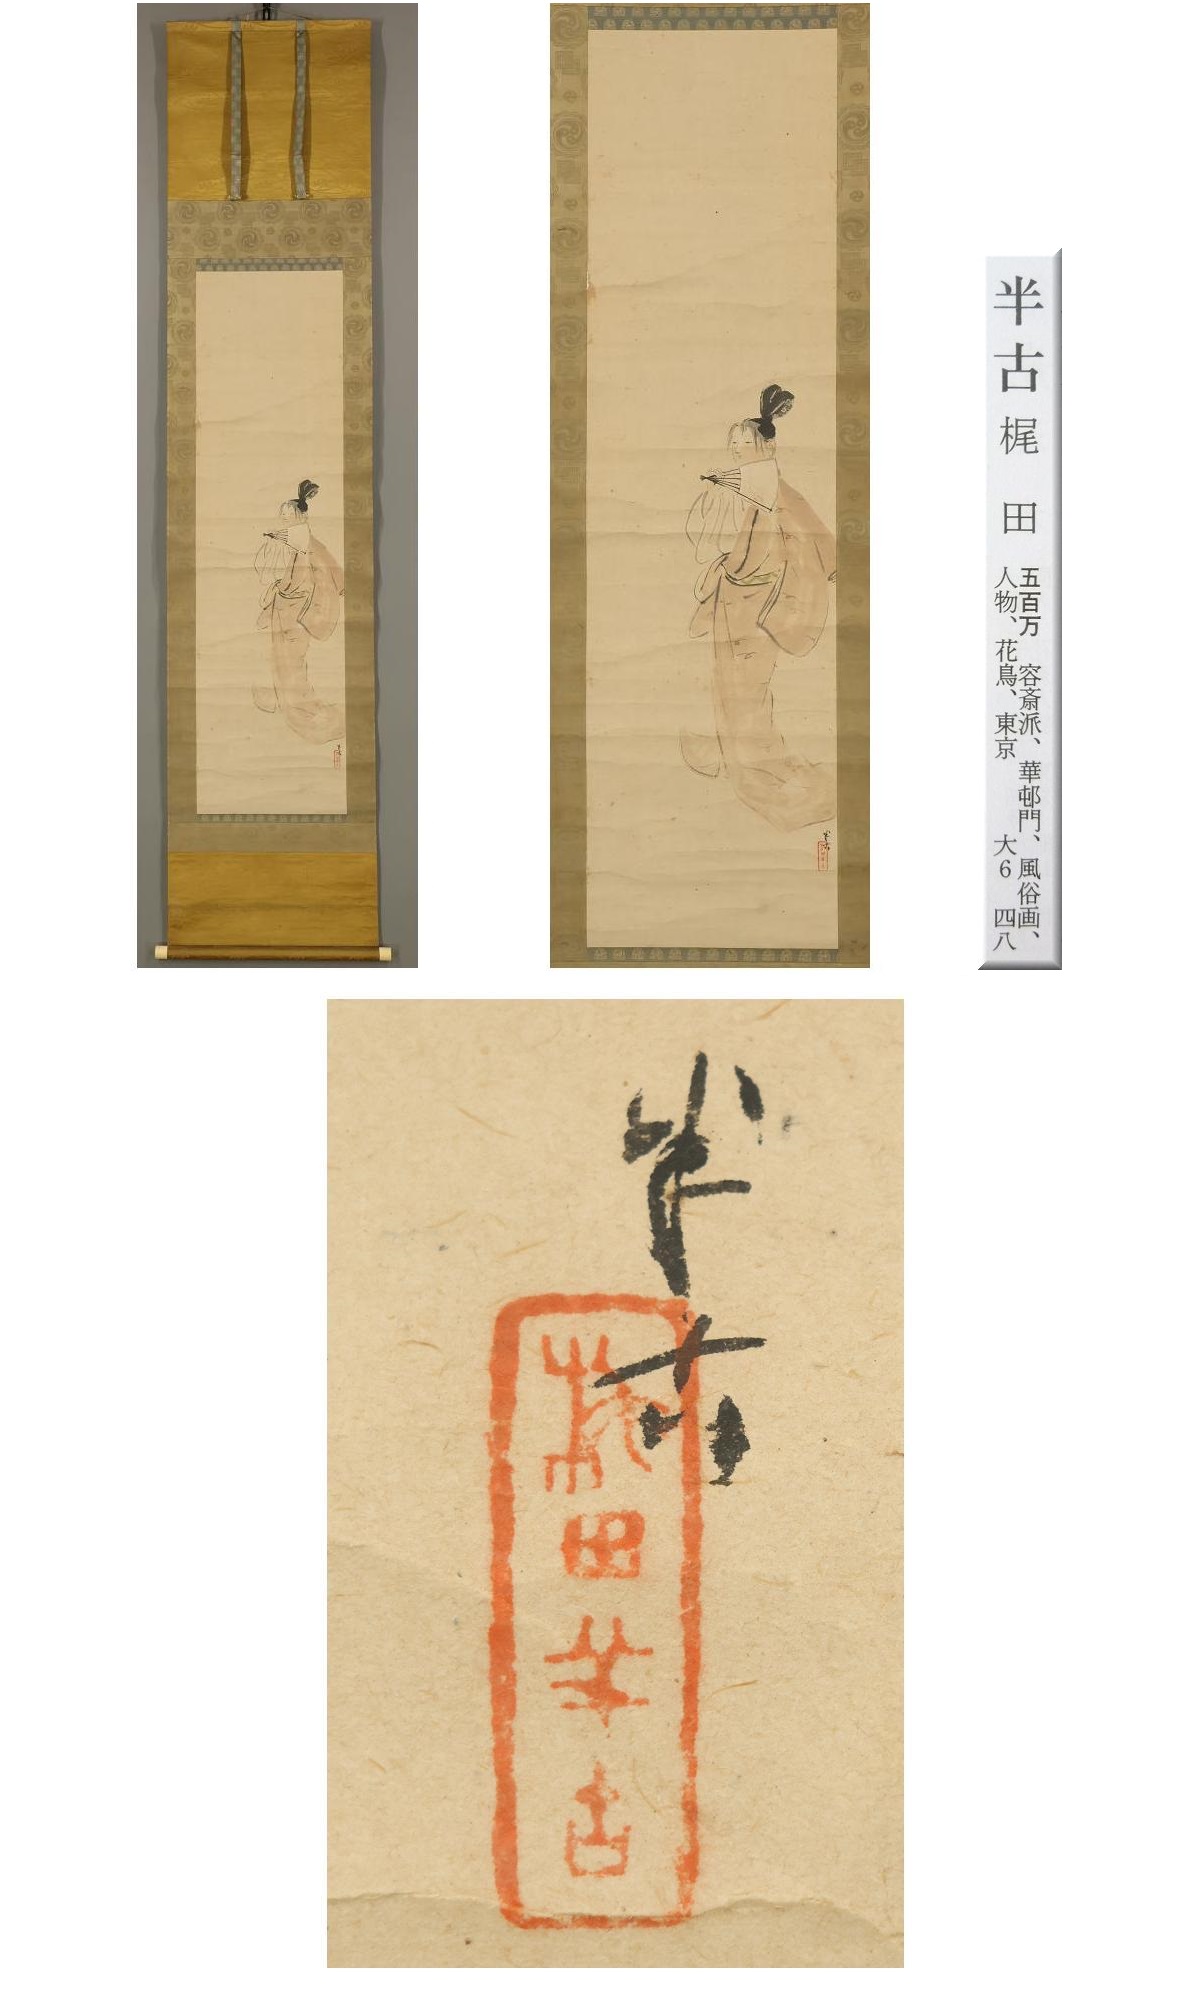 半古梶田
五百万 容斎派、華邨門、風俗画、
人物、花鳥、東京 大6 四八
半古
梶田半古